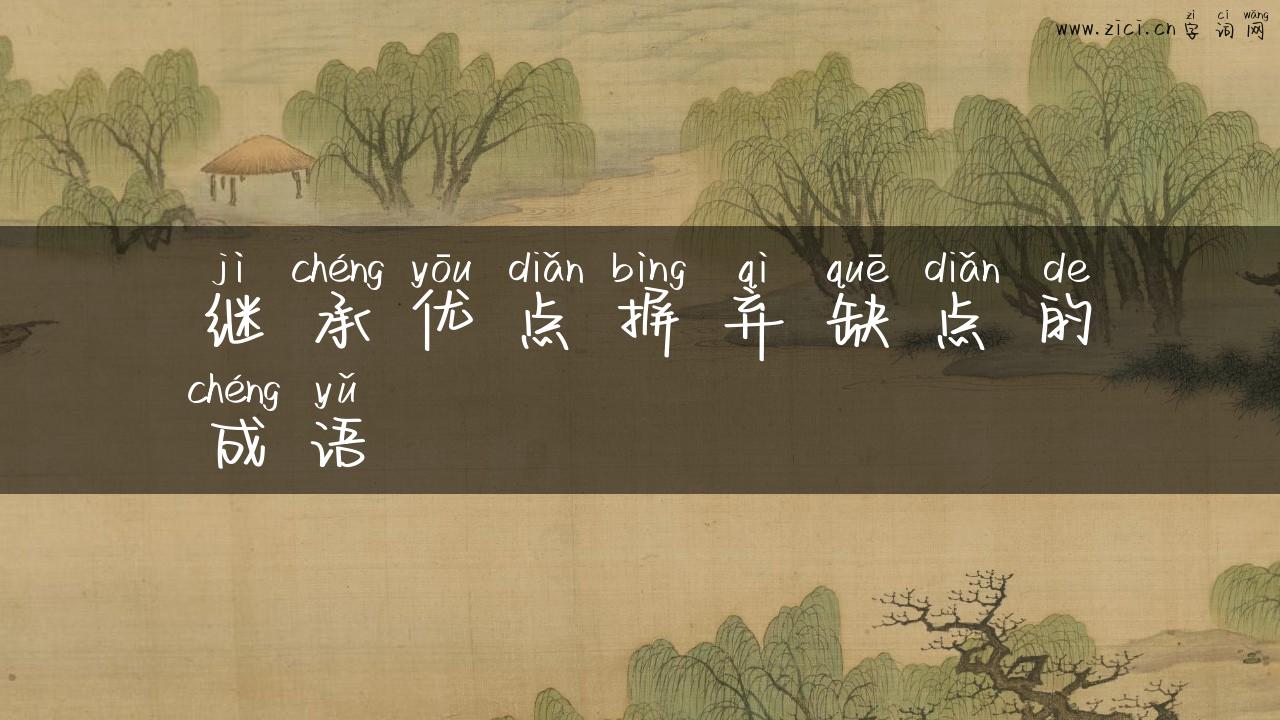 zì cí wǎng
www.zici.cn 字 词 网
jì chéng yōu diǎn bìng qì quē diǎn de
继 承 优 点 摒 弃 缺 点 的
chéng yǔ
成 语